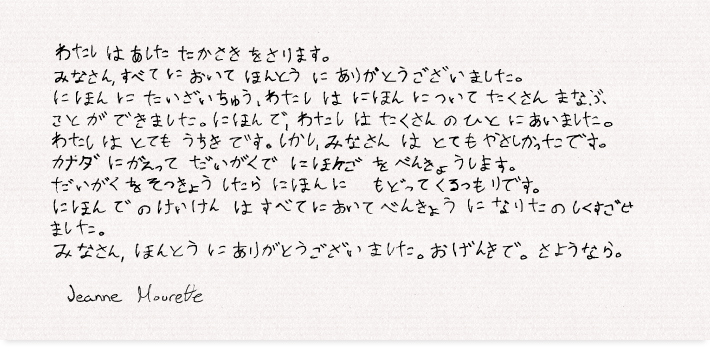 わたし は あした たかさき をさります。
みなさん, すべて に おいて ほんとう に ありがとうございました。
にほん に たいざいちゅう、わたし は にほん について たくさん まなぶ、
ことが できました。にほんで, わたし は たくさん の ひと に あいました。
わたし は とても うちき です。しかし, みなさん は とても やさしかったです。
カナダ にがえって だいがくで にほんご を べんきょうします。
だいがく をそつきょう したら にほんに もどってくるつもりです。
にほん での けいけん は すべてに おいて べんきょう に なりたのしくすごせ
ました。
みなさん, ほんとう に ありがとうございました。おげんきで。さようなら。
Jeanne Mourette